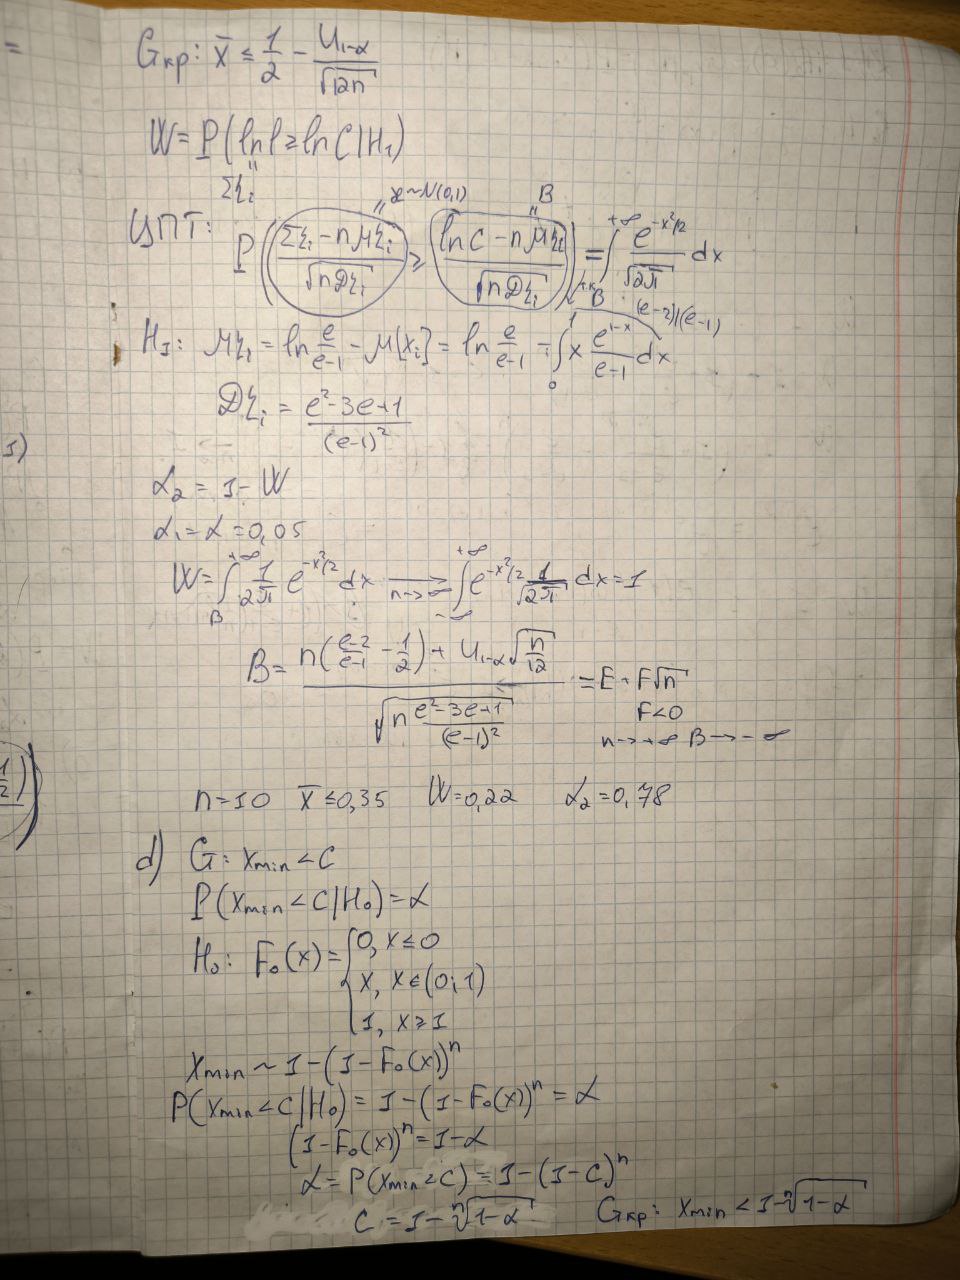 =
Gкр: x̄ ≤ 1/2 − U₁₋α/√(12n)
W = P(ln l ≥ ln C | H₁)
"
Σξᵢ
ЦПТ: P( (Σξᵢ − nMξᵢ)/√(nDξᵢ) ≥ (ln C − nMξᵢ)/√(nDξᵢ) ) = ∫_B^{+∞} e^{−x²/2}/√(2π) dx
" ~N(0,1)
B "
(e−2)/(e−1)
H₁: Mξᵢ = ln e/(e−1) − M[xᵢ] = ln e/(e−1) − ∫₀¹ x e^{1−x}/(e−1) dx
Dξᵢ = (e²−3e+1)/(e−1)²
1)
α₂ = 1 − W
α₁ = α = 0,05
W = ∫_B^{+∞} 1/2π e^{−x²/2} dx →_{n→∞} ∫_{−∞}^{+∞} e^{−x²/2} 1/√(2π) dx = 1
B = (n((e−2)/(e−1) − 1/2) + U₁₋α √(n/12)) / √(n (e²−3e+1)/(e−1)²) = E + F√n
F<0
n→+∞ B→−∞
1/2)
n=10 x̄ ≤ 0,35 W=0,22 α₂=0,78
d) G: xmin < C
P(xmin < C | H₀) = α
H₀: F₀(x) = { 0, x ≤ 0
x, x ∈ (0;1)
1, x ≥ 1
Xmin ~ 1−(1−F₀(x))ⁿ
P(xmin < C | H₀) = 1−(1−F₀(x))ⁿ = α
(1−F₀(x))ⁿ = 1−α
α = P(xmin < C) = 1−(1−C)ⁿ
C = 1 − ⁿ√(1−α) Gкр: xmin < 1 − ⁿ√(1−α)